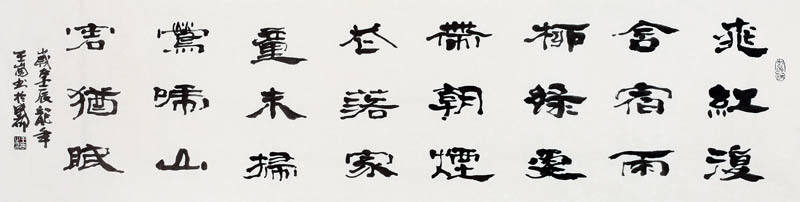 桃紅復
含宿雨
柳綠更
帶朝煙
花落家
童未掃
鶯啼山
客猶眠
歲壬辰龍年